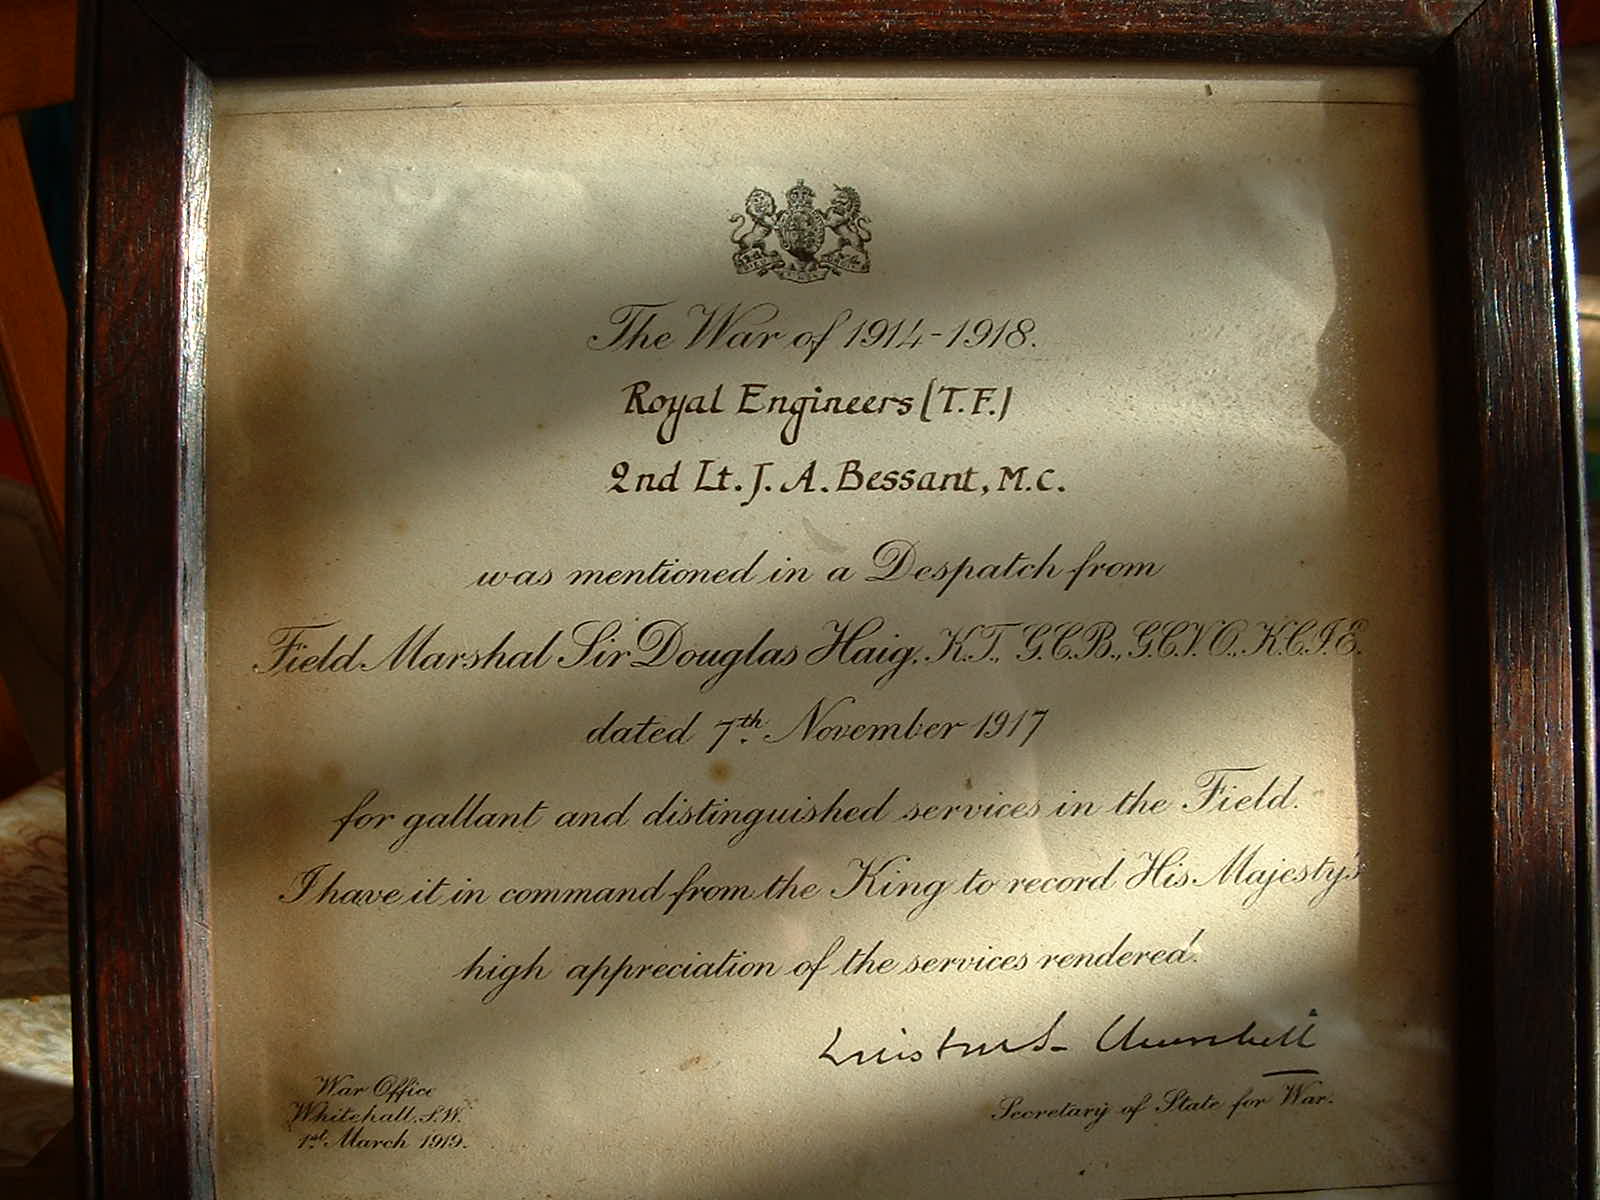 The War of 1914-1918.
Royal Engineers (T.F.)
2nd Lt. J. A. Bessant, M.C.
was mentioned in a Despatch from
Field Marshal Sir Douglas Haig, K.T., G.C.B., G.C.V.O., K.C.I.E.
dated 7th November 1917
for gallant and distinguished services in the Field.
I have it in command from the King to record His Majesty's
high appreciation of the services rendered.
Winston S. Churchill
War Office
Whitehall, S.W.
1st March 1919.
Secretary of State for War.